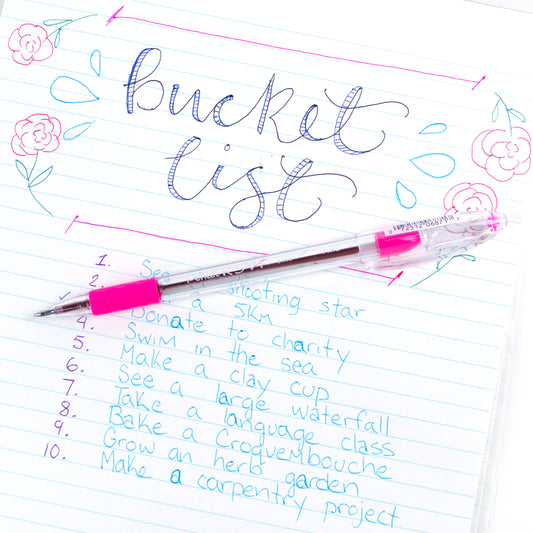 bucket
list
1. star
2. a 5km
Donate to charity
4. Swim in the sea
5. Make a clay cup
6. See a large waterfall
7. Take a language class
8. Bake a Croquembouche
9. Grow an herb garden
10. Make a carpentry project